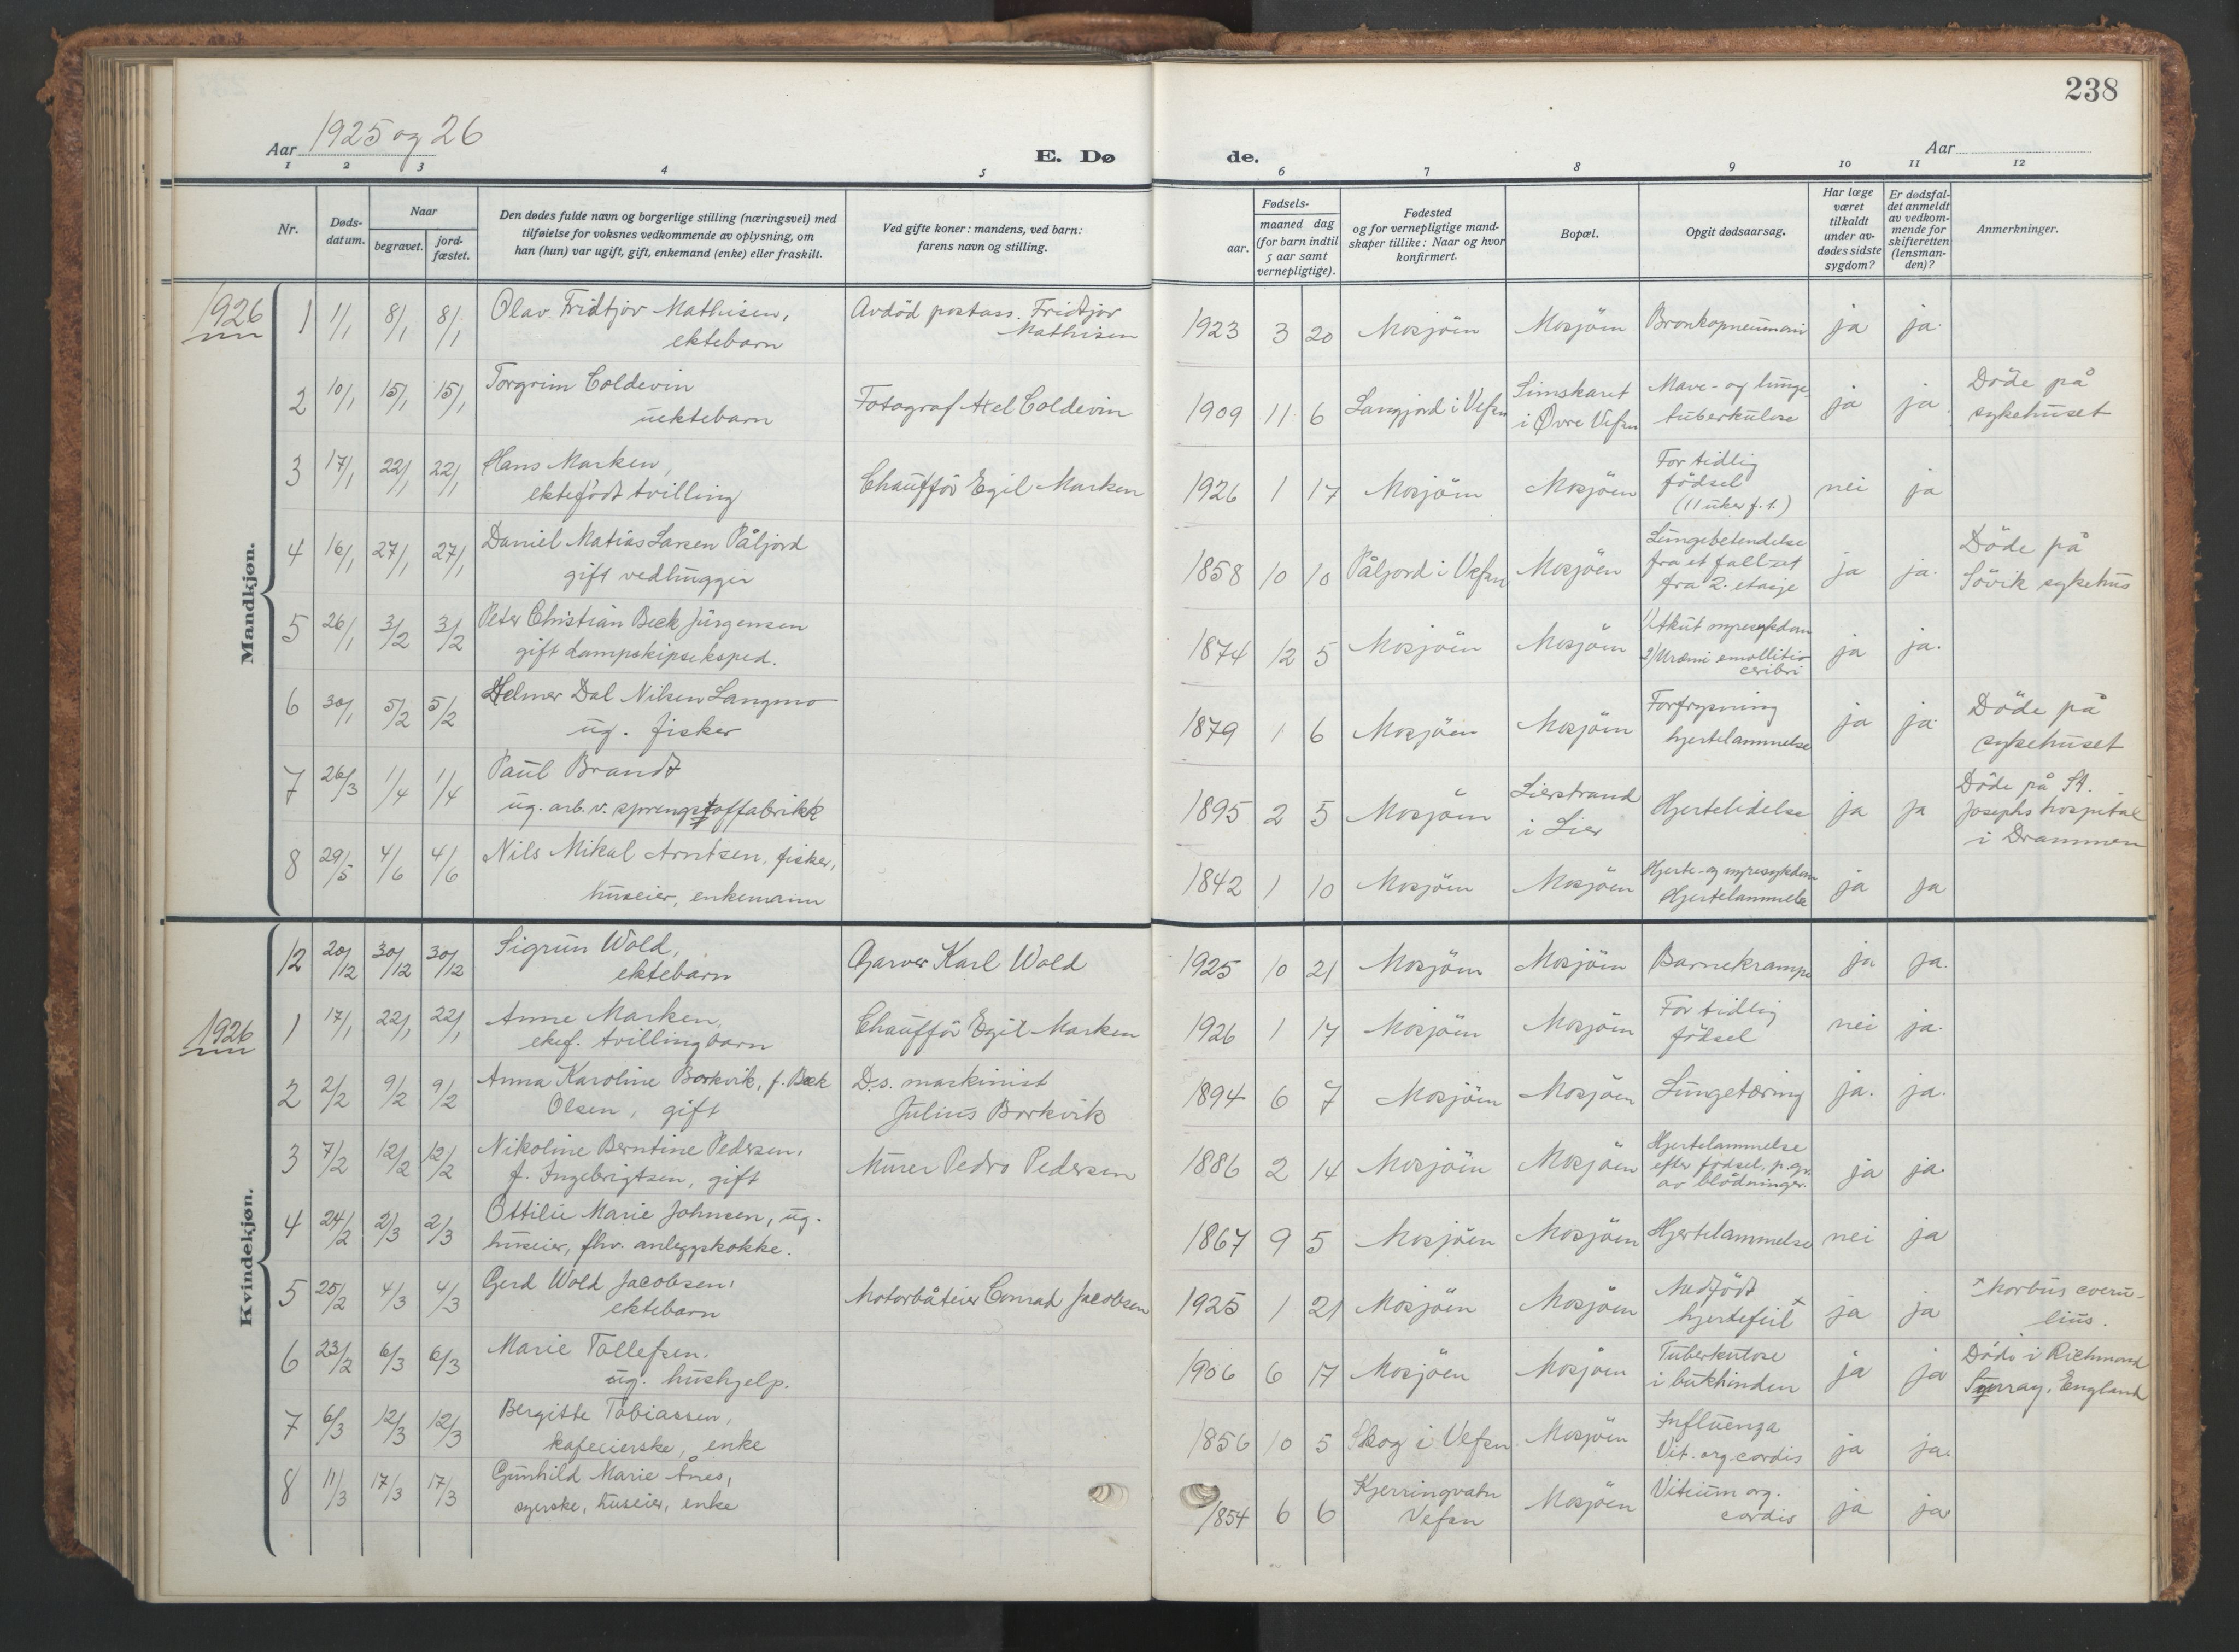 238
Aar 1925 og 26
E. Dø de.
Aar
1 2 3 4 5 6 7 8 9 10 11 12
Nr.
Døds-datum.
Naar
begravet.
jord-fæstet.
Den dødes fulde navn og borgerlige stilling (næringsvei) med
tilføielse for voksnes vedkommende av oplysning, om
han (hun) var ugift, gift, enkemand (enke) eller fraskilt.
Ved gifte koner: mandens, ved barn:
farens navn og stilling.
Fødsels-
aar.
maaned dag
(for barn indtil
5 aar samt
vernepligtige).
Fødested
og for vernepligtige mand-
skaper tillike: Naar og hvor
konfirmert.
Bopæl.
Opgit dødsaarsag.
Har læge
været
tilkaldt
under av-
dødes sidste
sygdom?
Er dødsfal-
det anmeldt
av vedkom-
mende for
skifteretten
(lensman-
den)?
Anmerkninger.
Mandkjøn.
1926
1 1/1 8/1 8/1 Olav Fridtjov Mathisen, ektebarn Avdöd postass. Fridtjov Mathisen 1923 3 20 Mosjöen Mosjöen Bronkopneumoni ja ja.
2 10/1 15/1 15/1 Torgrim Coldevin uektebarn Fotograf Axel Coldevin 1909 11 6 Langjord i Vefsn Simskaret i Øvre Vefsn Mave- og lunge tuberkulose ja ja. Döde på sykehuset
3 17/1 22/1 22/1 Hans Marken, ektefödt tvilling Chaufför Egil Marken 1926 1 17 Mosjöen Mosjöen For tidlig födsel (11 uker f. t.) nei ja
4 16/1 27/1 27/1 Daniel Matias Larsen Påljord gift vedhugger 1858 10 10 Påljord i Vefsn Mosjöen Lungebetendelse fra et fall ut fra 2. etasje ja ja. Döde på Sövik sykehus
5 26/1 3/2 3/2 Peter Christian Beck Jürgensen gift dampskipseksped. 1874 12 5 Mosjöen Mosjöen 1) Akut nyresykdom 2) Uræmi emollitio ceribri ja ja.
6 30/1 5/2 5/2 Helmer Dal Nilsen Langmo ug. fisker 1879 1 6 Mosjöen Mosjöen Forfrysning hjertelammelse ja ja. Döde på sykehuset
7 26/3 1/4 1/4 Paul Brandt ug. arb. v. sprengstoffabrikk 1895 2 5 Mosjöen Lierstrand i Lier Hjertelidelse ja ja Döde på St. Josephs hospital i Drammen
8 29/5 4/6 4/6 Nils Mikal Arntsen, fisker, huseier, enkemann 1842 1 10 Mosjöen Mosjöen Hjerte- og nyresykdom Hjertelammelse ja ja
Kvindekjøn.
12 20/12 30/12 30/12 Sigrun Wold, ektebarn Garver Karl Wold 1925 10 21 Mosjöen Mosjöen Barnekrampe ja ja.
1926
1 17/1 22/1 22/1 Anne Marken, ekef. tvillingbarn Chaufför Egil Marken 1926 1 17 Mosjöen Mosjöen For tidlig födsel nei ja.
2 2/2 9/2 9/2 Anna Karoline Borkvik, f. Beck Olsen, gift D.s. maskinist Julius Borkvik 1894 6 7 Mosjöen Mosjöen Lungetæring ja. ja.
3 7/2 12/2 12/2 Nikoline Berntine Pedersen, f. Ingebrigtsen, gift Murer Pedro Pedersen 1886 2 14 Mosjöen Mosjöen Hjertelammelse efter födsel, p. gr. av blödninger. ja ja.
4 24/2 2/3 2/3 Ottilie Marie Johnsen, ug. huseier, fhv. anleggskokke. 1867 9 5 Mosjöen Mosjöen Hjertelammelse nei ja
5 25/2 4/3 4/3 Gerd Wold Jacobsen, ektebarn Motorbåteier Conrad Jacobsen 1925 1 21 Mosjöen Mosjöen Medfödt hjertefeil x ja ja x Morbus coeruleus.
6 23/2 6/3 6/3 Marie Tollefsen. ug. hushjelp. 1906 6 17 Mosjöen Mosjöen Tuberkulose i bukhinden ja ja Döde i Richmond Surray, England
7 6/3 12/3 12/3 Bergitte Tobiassen, kafeeierske, enke 1856 10 5 Skog i Vefsn Mosjöen Influenza Vit. org. cordis ja ja.
8 11/3 17/3 17/3 Gunhild Marie Ånes, syerske, huseier, enke 1854 6 6 Kjerringvatn Vefsn Mosjöen Vitium org. cordis ja ja.